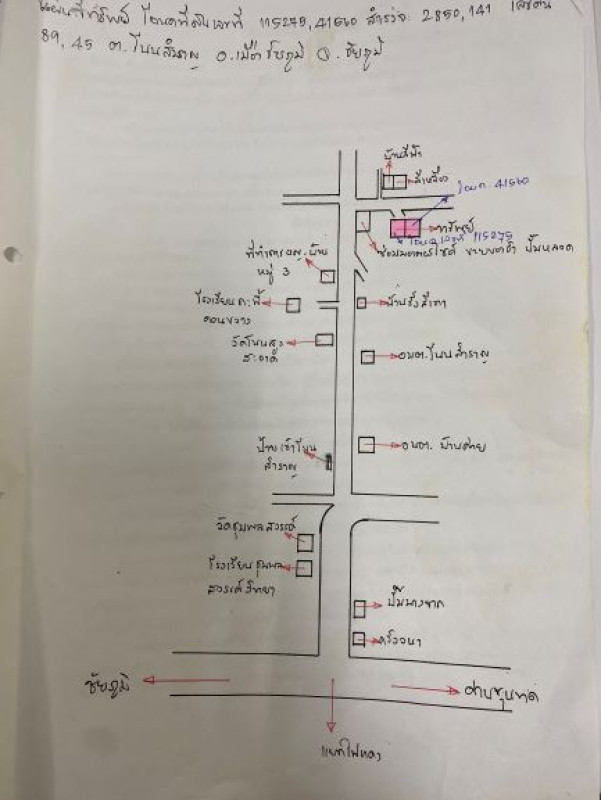 แผนที่ทรัพย์ โฉนดที่ดินเลขที่ 115275, 41560 สำรวจ 2850, 141 เลขดิน
89, 45 ต.โนนสำราญ อ.เมืองชัยภูมิ จ.ชัยภูมิ
บ้านสีฟ้า
สีเหลือง
โฉนด. 41560
ทรัพย์
โฉนดเลขที่ 115275
ซ่อมมอเตอร์ไซค์
ปั๊มหลอด
ที่ทำการ ผญ. บ้าน
หมู่ 3
โรงเรียน
ดอนขวาง
วัดโนนสูง
สะอาด
บ้านรั้วสีเทา
อบต. โนนสำราญ
ป้ายเข้าโนน
สำราญ
วัดชุมพลสวรรค์
โรงเรียนชุมพล
สวรรค์วิทยา
ปั๊มบางจาก
ครัวอนา
ชัยภูมิ
ด่านขุนทด
แยกไฟแดง